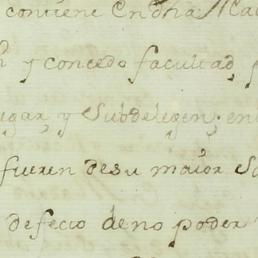 conviene en dha
y concedo facultad
y Subdeleguen; en
fueren de su maior
defecto de no poder